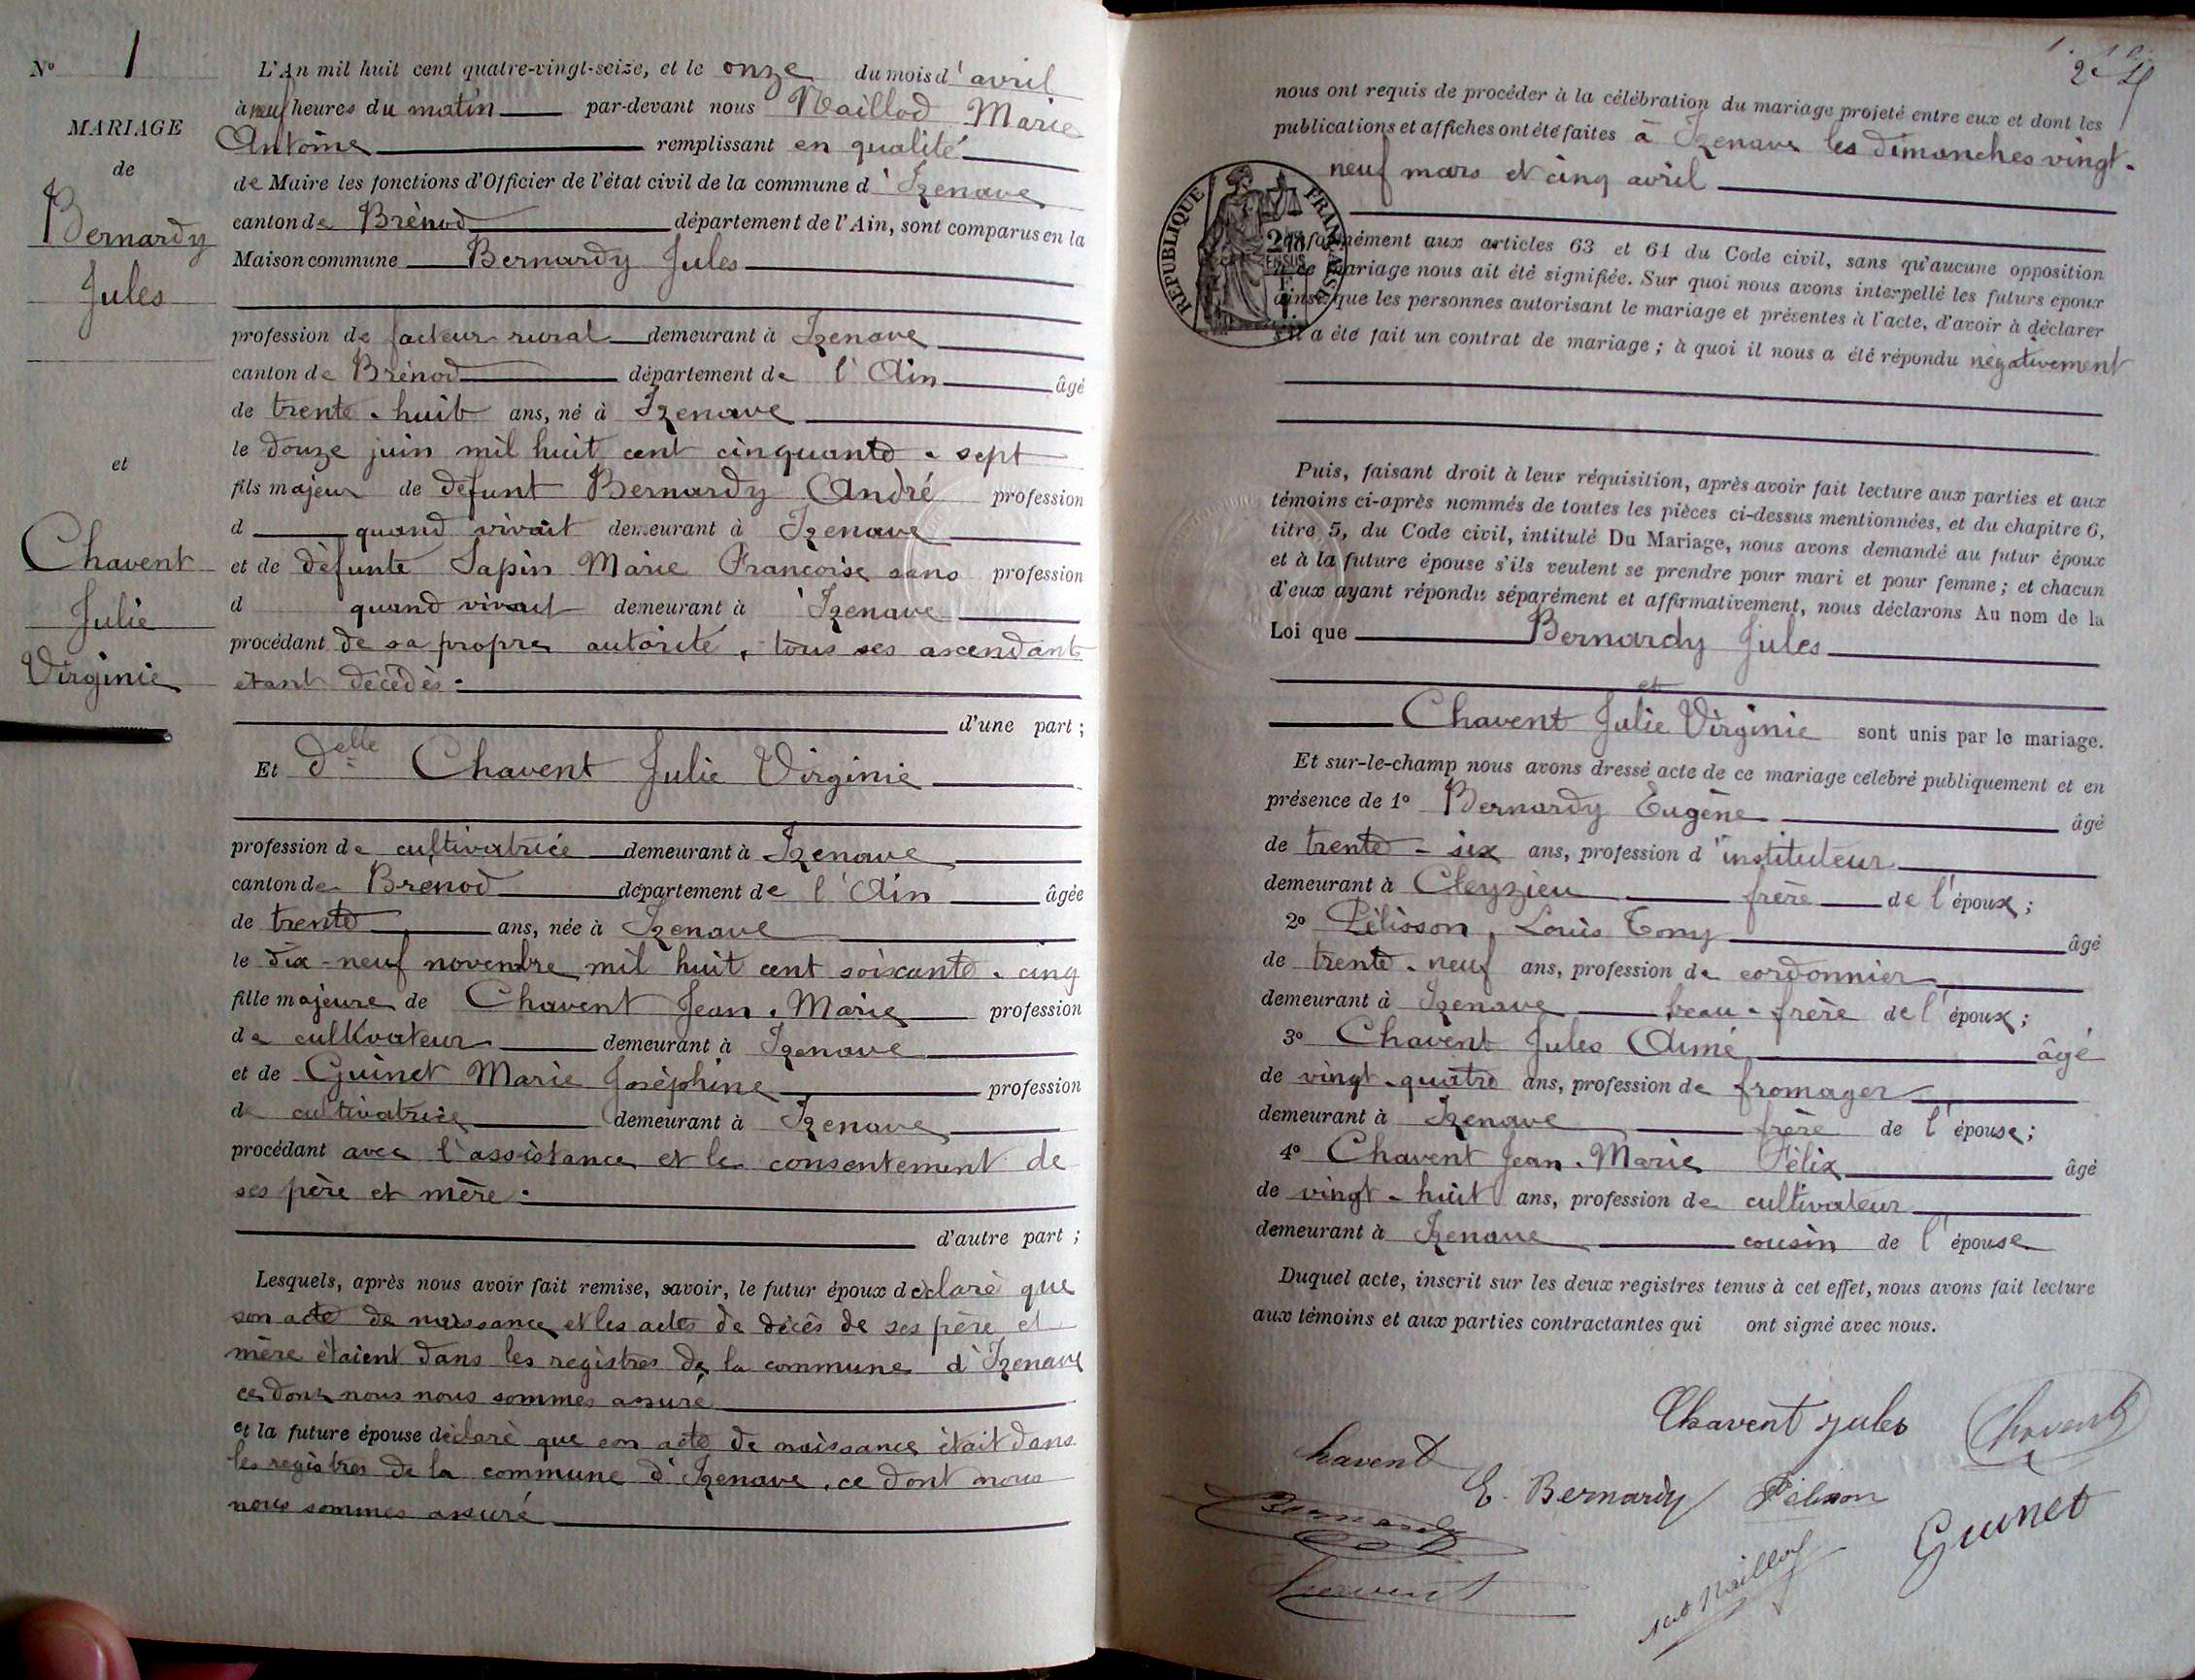 N° 1
MARIAGE
de
Bernardy
Jules
et
Chavent
Julie
Virginie
L'An mil huit cent quatre-vingt-seize, et le onze du mois d'avril
à neuf heures du matin par-devant nous Maillod Marie
Antoine remplissant en qualité
de Maire les fonctions d'Officier de l'état civil de la commune d'Izenave
canton de Brénod département de l'Ain, sont comparus en la
Maison commune Bernardy Jules
profession de facteur rural demeurant à Izenave
canton de Brénod département de l'Ain âgé
de trente-huit ans, né à Izenave
le douze juin mil huit cent cinquante-sept
fils majeur de défunt Bernardy André profession
d quand vivait demeurant à Izenave
et de défunte Sapin Marie Francoise sans profession
d quand vivait demeurant à Izenave
procédant de sa propre autorité, tous ses ascendants
étant décédés.
d'une part;
Et Delle Chavent Julie Virginie
profession de cultivatrice demeurant à Izenave
canton de Brenod département de l'Ain âgée
de trente ans, née à Izenave
le dix-neuf novembre mil huit cent soixante-cinq
fille majeure de Chavent Jean-Marie profession
de cultivateur demeurant à Izenave
et de Guinet Marie Joséphine profession
de cultivatrice demeurant à Izenave
procédant avec l'assistance et le consentement de
ses père et mère.
d'autre part;
Lesquels, après nous avoir fait remise, savoir, le futur époux déclaré que
son acte de naissance et les actes de décès de ses père et
mère étaient dans les registres de la commune d'Izenave
ce dont nous nous sommes assuré
et la future épouse déclaré que son acte de naissance était dans
les registres de la commune d'Izenave, ce dont nous
nous sommes assuré
nous ont requis de procéder à la célébration du mariage projeté entre eux et dont les
publications et affiches ont été faites à Izenave les dimanches vingt-
neuf mars et cinq avril
RÉPUBLIQUE FRANÇAISE
conformément aux articles 63 et 64 du Code civil, sans qu'aucune opposition
à ce mariage nous ait été signifiée. Sur quoi nous avons interpellé les futurs époux
ainsi que les personnes autorisant le mariage et présentes à l'acte, d'avoir à déclarer
s'il a été fait un contrat de mariage; à quoi il nous a été répondu négativement
Puis, faisant droit à leur réquisition, après avoir fait lecture aux parties et aux
témoins ci-après nommés de toutes les pièces ci-dessus mentionnées, et du chapitre 6,
titre 5, du Code civil, intitulé Du Mariage, nous avons demandé au futur époux
et à la future épouse s'ils veulent se prendre pour mari et pour femme; et chacun
d'eux ayant répondu séparément et affirmativement, nous déclarons Au nom de la
Loi que Bernardy Jules
et
Chavent Julie Virginie sont unis par le mariage.
Et sur-le-champ nous avons dressé acte de ce mariage célébré publiquement et en
présence de 1° Bernardy Eugène âgé
de trente-six ans, profession d'instituteur
demeurant à Cleyzieu frère de l'époux;
2° Pélisson, Louis Tony âgé
de trente-neuf ans, profession de cordonnier
demeurant à Izenave beau-frère de l'époux;
3° Chavent Jules Aimé âgé
de vingt-quatre ans, profession de fromager
demeurant à Izenave frère de l'épouse;
4° Chavent Jean-Marie Félix âgé
de vingt-huit ans, profession de cultivateur
demeurant à Izenave cousin de l'épouse
Duquel acte, inscrit sur les deux registres tenus à cet effet, nous avons fait lecture
aux témoins et aux parties contractantes qui ont signé avec nous.
Chavent Jules Chavent
havent
E. Bernardy Pélisson
Bernardy
Guinet
Chavent